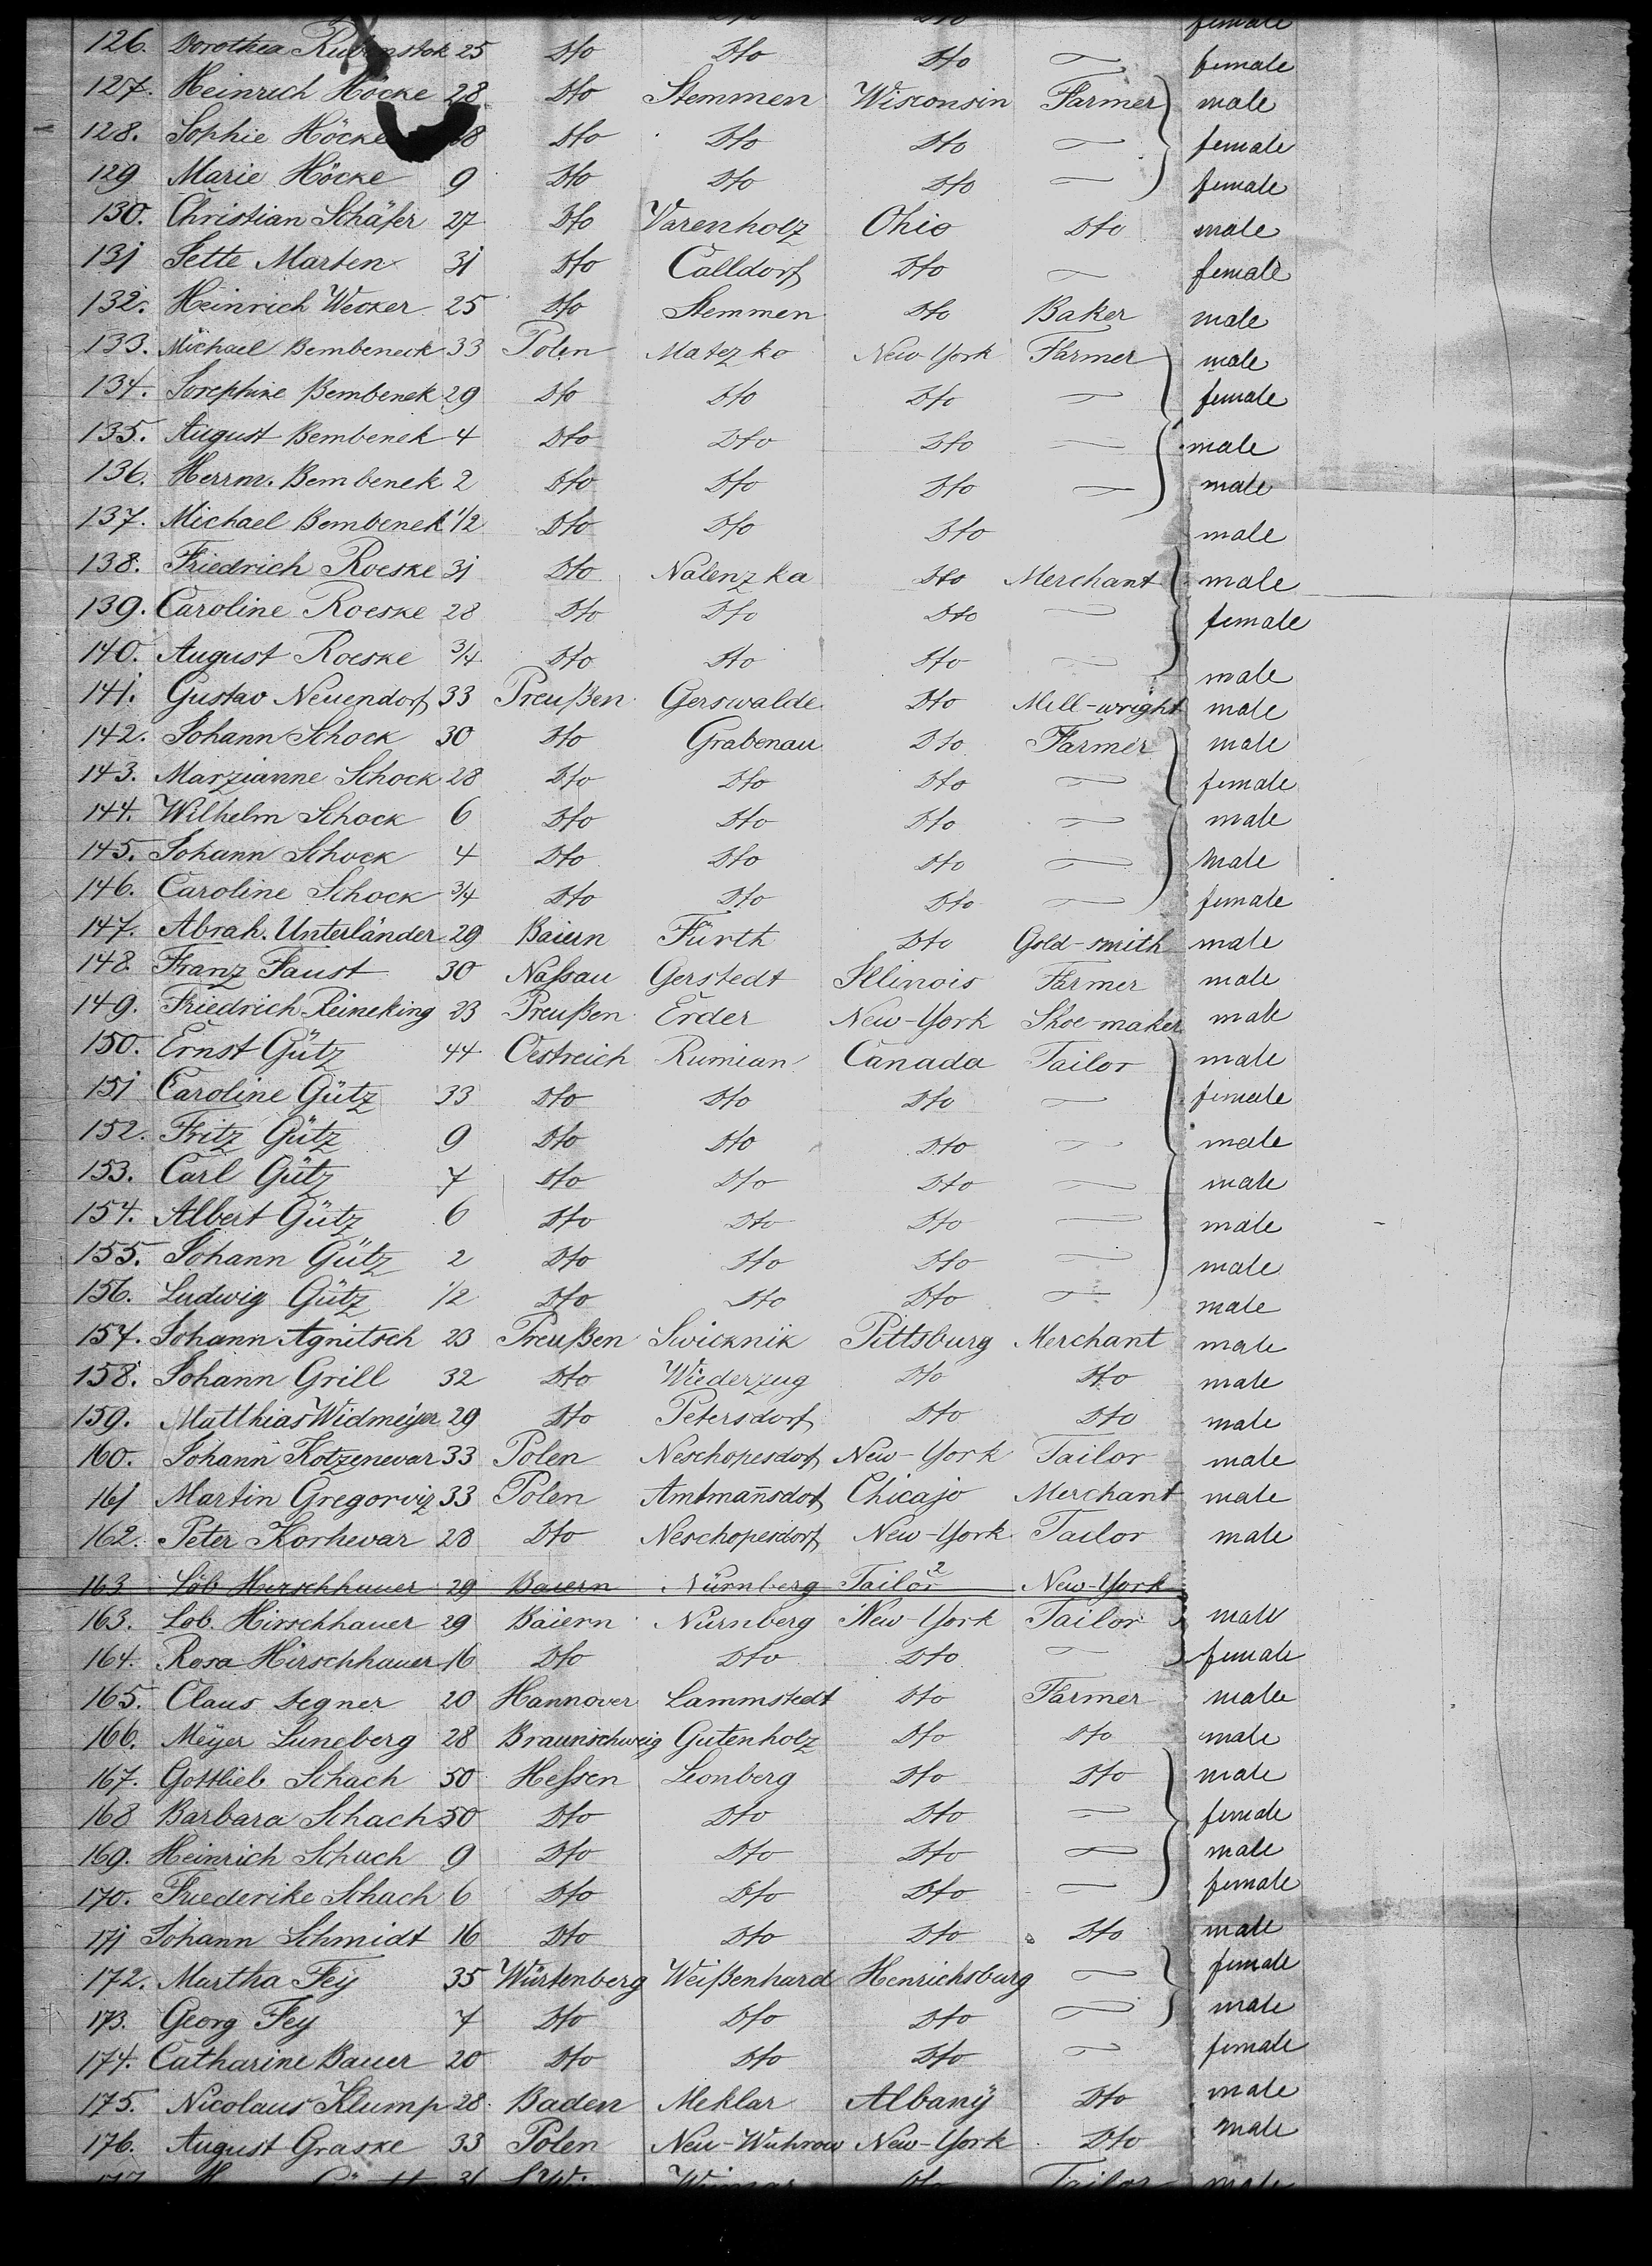 female
126. Dorothea 25 Dto Dto Dto — female
127. Heinrich Höcke 28 Dto Stemmen Wisconsin Farmer male
128. Sophie Höcke Dto Dto Dto — female
129 Marie Höcke 9 Dto Dto Dto — female
130. Christian Schäfer 27 Dto Varenholz Ohio Dto male
131 Jette Marten 31 Dto Calldorf Dto — female
132. Heinrich Wecker 25 Dto Stemmen Dto Baker male
133. Michael Bembeneck 33 Polen Matezko New York Farmer male
134. Josephine Bembenek 29 Dto Dto Dto — female
135. August Bembenek 4 Dto Dto Dto — male
136. Herrm. Bembenek 2 Dto Dto Dto — male
137. Michael Bembenek 1/2 Dto Dto Dto male
138. Friedrich Roeske 31 Dto Nalenzka Dto Merchant male
139. Caroline Roeske 28 Dto Dto Dto — female
140. August Roeske 3/4 Dto Dto Dto — male
141. Gustav Neuendorf 33 Preußen Gerswalde Dto Mill-wright male
142. Johann Schock 30 Dto Grabenau Dto Farmer male
143. Marzianne Schock 28 Dto Dto Dto — female
144. Wilhelm Schock 6 Dto Dto Dto — male
145. Johann Schock 4 Dto Dto Dto — male
146. Caroline Schock 3/4 Dto Dto Dto — female
147. Abrah. Unterländer 29 Baiern Fürth Dto Gold-smith male
148. Franz Faust 30 Naßau Gerstedt Illinois Farmer male
149. Friedrich Reineking 23 Preußen Erder New-York Shoe-maker male
150. Ernst Gütz 44 Oestreich Rumian Canada Tailor male
151 Caroline Gütz 33 Dto Dto Dto — female
152. Fritz Gütz 9 Dto Dto Dto — male
153. Carl Gütz 7 Dto Dto Dto — male
154. Albert Gütz 6 Dto Dto Dto — male
155. Johann Gütz 2 Dto Dto Dto — male
156. Ludwig Gütz 1/2 Dto Dto Dto — male
157. Johann Agnitsch 23 Preußen Swicknik Pittsburg Merchant male
158. Johann Grill 32 Dto Wiederzug Dto Dto male
159. Matthias Widmeÿer 29 Dto Petersdorf Dto Dto male
160. Johann Kotzenevar 33 Polen Neschopesdorf New-York Tailor male
161 Martin Gregorviz 33 Polen Amtmañsdorf Chicajo Merchant male
162. Peter Korhevar 28 Dto Neschopesdorf New-York Tailor male
163 Löb Hirschhauer 29 Baiern Nürnberg Tailor 2 New-York
163. Löb. Hirschhauer 29 Baiern Nürnberg New-York Tailor male
164. Rosa Hirschhauer 16 Dto Dto Dto — female
165. Claus Segner 20 Hannover Lammstedt Dto Farmer male
166. Meÿer Luneberg 28 Braunschweig Gutenholz Dto Dto male
167. Gottlieb Schach 50 Heßen Leonberg Dto Dto male
168 Barbara Schach 50 Dto Dto Dto — female
169. Heinrich Schach 9 Dto Dto Dto — male
170. Friederike Schach 6 Dto Dto Dto — female
171 Johann Schmidt 16 Dto Dto Dto Dto male
172. Martha Feÿ 35 Würtenberg Weißenhard Henrichsburg — female
173. Georg Fey 7 Dto Dto Dto — male
174. Catharine Bauer 20 Dto Dto Dto — female
175. Nicolaus Klump 28 Baden Meklar Albanÿ Dto male
176. August Graske 33 Polen Neu-Wuhrow New-York Dto male
Weimar Dto Tailor male